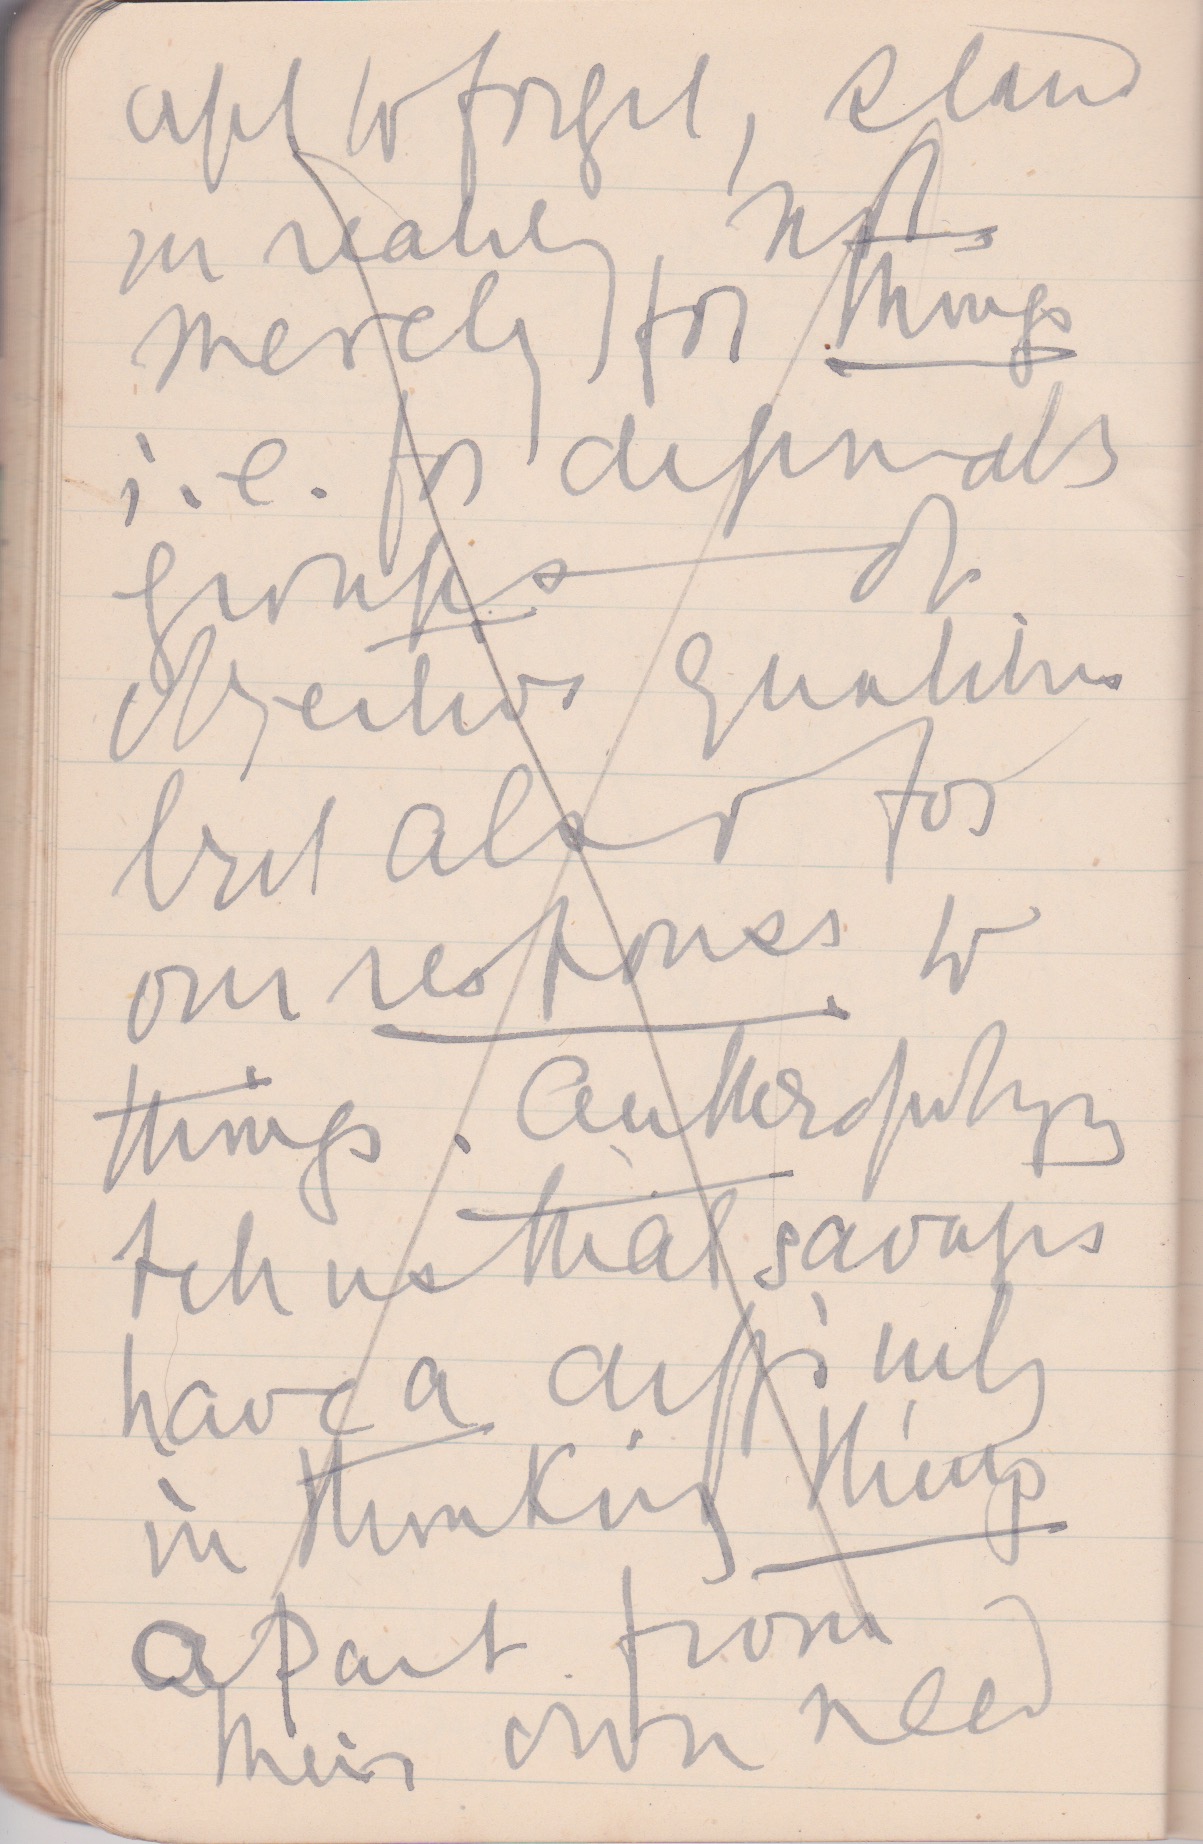 apt to forget, stand
in reality, not
merely for things
i.e. for definable
groups of
objective qualities
but also for
our responses to
things. Anthropology
tells us that savages
have a difficulty
in thinking things
apart from
their own need